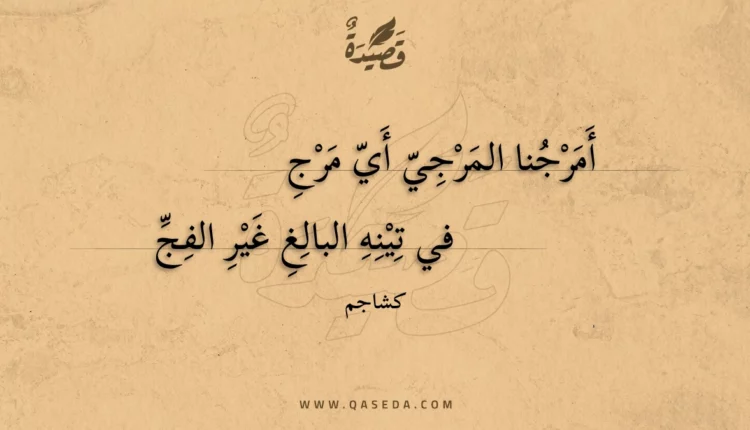 قَصِيْدَةٌ
أَمَرْجُنا المَرْجِيّ أَيّ مَرْجِ
في تِيْنِهِ البالِغِ غَيْرِ الفِجِّ
كشاجم
WWW.QASEDA.COM